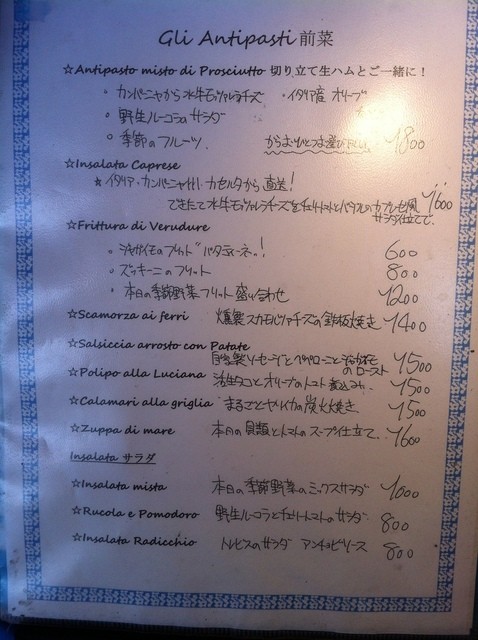 Gli Antipasti 前菜
☆Antipasto misto di Prosciutto 切り立て生ハムとご一緒に！
・カンパーニャから水牛モッツァレラチーズ ・イタリア産 オリーブ
・野生ルーコラのサラダ
・季節のフルーツ からおひとつお選び下さい 1800
☆Insalata Caprese
★イタリア・カンパーニャ州 カゼルタから直送！
できたて水牛モッツァレラチーズをチェリートマトとバジルのカプレーゼ風 1600
サラダ仕立てで
☆Frittura di Verudure
○ジャガイモのフリット パタティーネっ！ 600
○ズッキーニのフリット 800
○本日の季節野菜フリット盛り合わせ 1200
☆Scamorza ai ferri 燻製スカモルツァチーズの鉄板焼き 1400
☆Salsiccia arrosto con Patate
自家製ソーセージとペペローニとジャガイモ 1500
のロースト
☆Polipo alla Luciana 活生タコとオリーブのトマト煮込み 1500
☆Calamari alla griglia まるごとヤリイカの炭火焼き 1500
☆Zuppa di mare 本日の貝類とトマトのスープ仕立て 1600
Insalata サラダ
☆Insalata mista 本日の季節野菜のミックスサラダ 1000
☆Rucola e Pomodoro 野生ルーコラとチェリートマトのサラダ 800
☆Insalata Radicchio トレビスのサラダ アンチョビソース 800